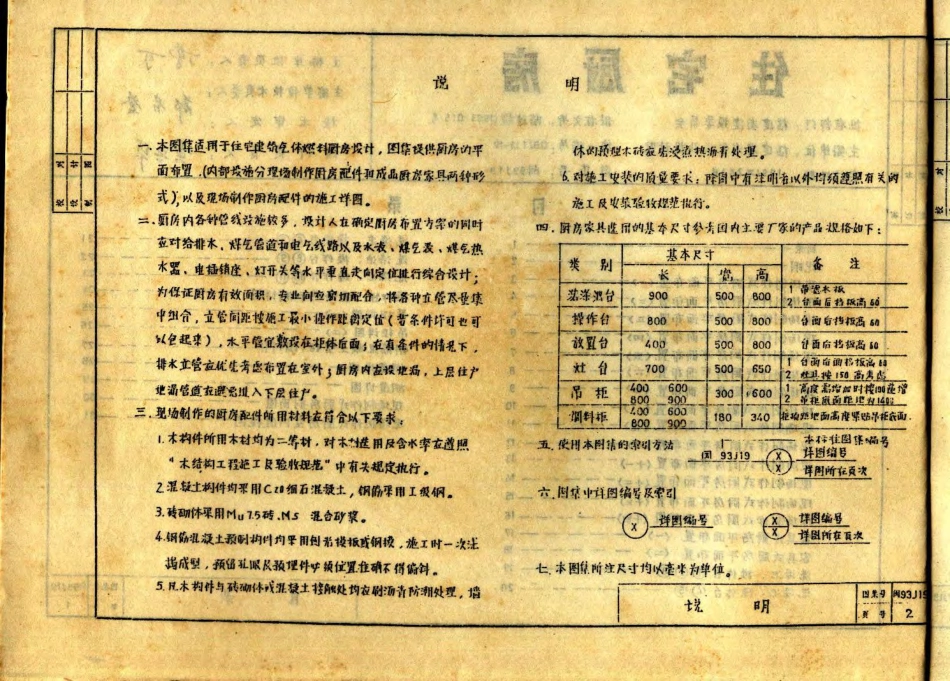 说 明
一、本图集适用于住宅建筑气体燃料厨房设计，图集提供厨房的平
面布置，(内部设施分现场制作厨房配件和成品厨房家具两种形
式)，以及现场制作厨房配件的施工详图。
二、厨房内各种管线设施较多，设计人在确定厨房布置方案的同时
应对给排水、煤气管道和电气线路以及水表、煤气表、煤气热
水器、电插销座、灯开关等水平垂直走向定位进行综合设计；
为保证厨房有效面积，专业间应密切配合，将各种立管尽量集
中组合，立管间距按施工最小操作距离定位(若条件许可也可
以包起来)，水平管宜敷设在柜体后面；在有条件的情况下，
排水立管应优先考虑布置在室外；厨房内应设地漏，上层住户
地漏管道应避免进入下层住户。
三、现场制作的厨房配件所用材料应符合以下要求：
1.木构件所用木材均为二等材，对木材选用及含水率应遵照
"木结构工程施工及验收规范"中有关规定执行。
2.混凝土构件均采用C20细石混凝土，钢筋采用I级钢。
3.砖砌体采用Mu7.5砖、M5 混合砂浆。
4.钢筋混凝土预制构件均采用刨光模板或钢模，施工时一次法
捣成型，预留孔眼及预埋件必须位置准确不得偏斜。
5.凡木构件与砖砌体或混凝土接触处均应刷沥青防潮处理，墙
体的预埋木砖应先浸煮热沥青处理。
6.对施工安装的质量要求：除图中有注明者以外均须遵照有关的
施工及安装验收规范执行。
四、厨房家具选用的基本尺寸参考国内主要厂家的产品规格如下：
类 别 基本尺寸 备 注
长 宽 高
洗涤池台 900 500 800 1 带滤水板
2 台面后挡板高60
操作台 800 500 800 台面后挡板高60
放置台 400 500 800 台面后挡板高60
灶台 700 500 650 1 台面后面挡板高60
2 灶具按150高考虑
吊柜 400 600 800 900 300 600 1 高度需增加时按100递增
2 吊柜底面距地为1400
调料柜 400 600 800 900 180 340 柜响距地面高度紧贴吊柜底面
五、使用本图集的索引方法
本标准图集编号
闽93J19 X 详图编号
X 详图所在页次
六、图集中详图编号及索引
X 详图编号
X 详图编号
X 详图所在页次
七、本图集所注尺寸均以毫米为单位。
说 明
图集号 闽93J19
页号 2